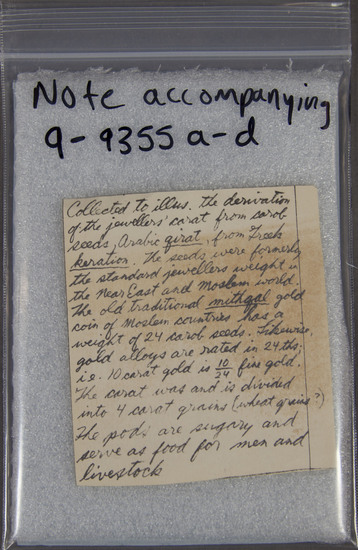 Note accompanying
9-9355 a-d
Collected to illus. the derivation
of the jewellers' carat from carob
seeds, Arabic qirat, from Greek
keration. The seeds were formerly
the standard jewellers weight in
the Near East and Moslem world.
The old traditional mithqal gold
coin of Moslem countries has a
weight of 24 karob seeds. Likewise,
gold alloys are rated in 24ths;
i.e. 10 carat gold is 10/24 fine gold.
The carat was and is divided
into 4 carat grains (wheat grains?)
The pods are sugary and
serve as food for men and
livestock